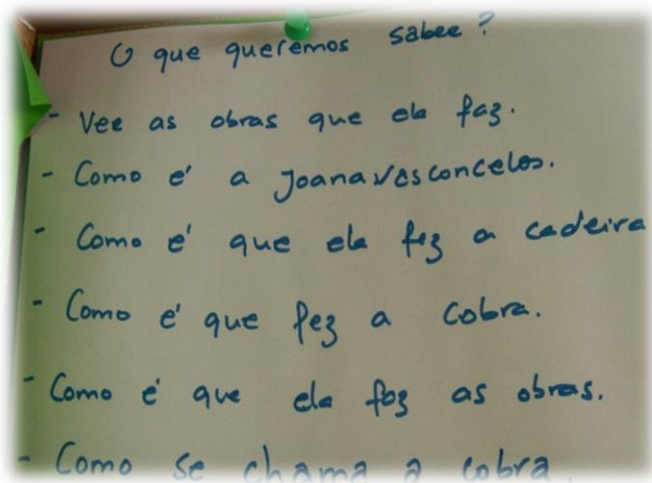 O que queremos saber?
- Ver as obras que ela faz.
- Como é a Joana Vasconcelos.
- Como é que ela fez a cadeira
- Como é que fez a cobra.
- Como é que ela faz as obras.
- Como se chama a cobra.